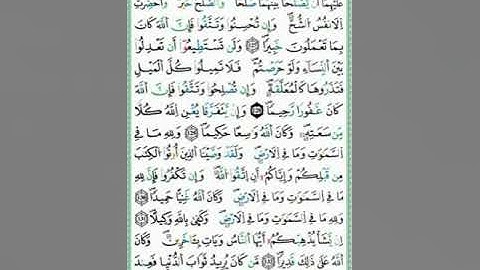 عَلَيْهِمَا أَنْ يَصَّٰلَحَا بَيْنَهُمَا صُلْحًا وَالصُّلْحُ خَيْرٌ وَأُحْضِرَتِ
اِ۬لَانفُسُ اُ۬لشُّحَّ وَإِن تُحْسِنُوا وَتَتَّقُوا فَإِنَّ اَ۬للَّهَ كَانَ
بِمَا تَعْمَلُونَ خَبِيرًا وَلَن تَسْتَطِيعُوا أَن تَعْدِلُوا
بَيْنَ اَ۬لنِّسَاءِ وَلَوْ حَرَصْتُمْ فَلَا تَمِيلُوا كُلَّ اَ۬لْمَيْلِ
فَتَذَرُوهَا كَالْمُعَلَّقَةِ وَإِن تُصْلِحُوا وَتَتَّقُوا فَإِنَّ اَ۬للَّهَ
كَانَ غَفُورًا رَّحِيمًا وَإِنْ يَّتَفَرَّقَا يُغْنِ اِ۬للَّهُ كُلًّا
مِّن سَعَتِهِ وَكَانَ اَ۬للَّهُ وَٰسِعًا حَكِيمًا وَلِلهِ مَا فِي
اِ۬لسَّمَٰوَٰتِ وَمَا فِي اِ۬لَارْضِ وَلَقَدْ وَصَّيْنَا اَ۬لذِينَ أُوتُوا اُ۬لْكِتَٰبَ
مِن قَبْلِكُمْ وَإِيَّاكُمْ أَنِ اِ۪تَّقُوا اُ۬للَّهَ وَإِن تَكْفُرُوا فَإِنَّ لِلهِ
مَا فِي اِ۬لسَّمَٰوَٰتِ وَمَا فِي اِ۬لَارْضِ وَكَانَ اَ۬للَّهُ غَنِيًّا حَمِيدًا
وَلِلهِ مَا فِي اِ۬لسَّمَٰوَٰتِ وَمَا فِي اِ۬لَارْضِ وَكَفَىٰ بِاللَّهِ وَكِيلًا
اِنْ يَّشَأْ يُذْهِبْكُمْ أَيُّهَا اَ۬لنَّاسُ وَيَاتِ بِـَٔاخَرِينَ وَكَانَ
اَ۬للَّهُ عَلَىٰ ذَٰلِكَ قَدِيرًا مَّن كَانَ يُرِيدُ ثَوَابَ اَ۬لدُّنْيَا فَعِندَ